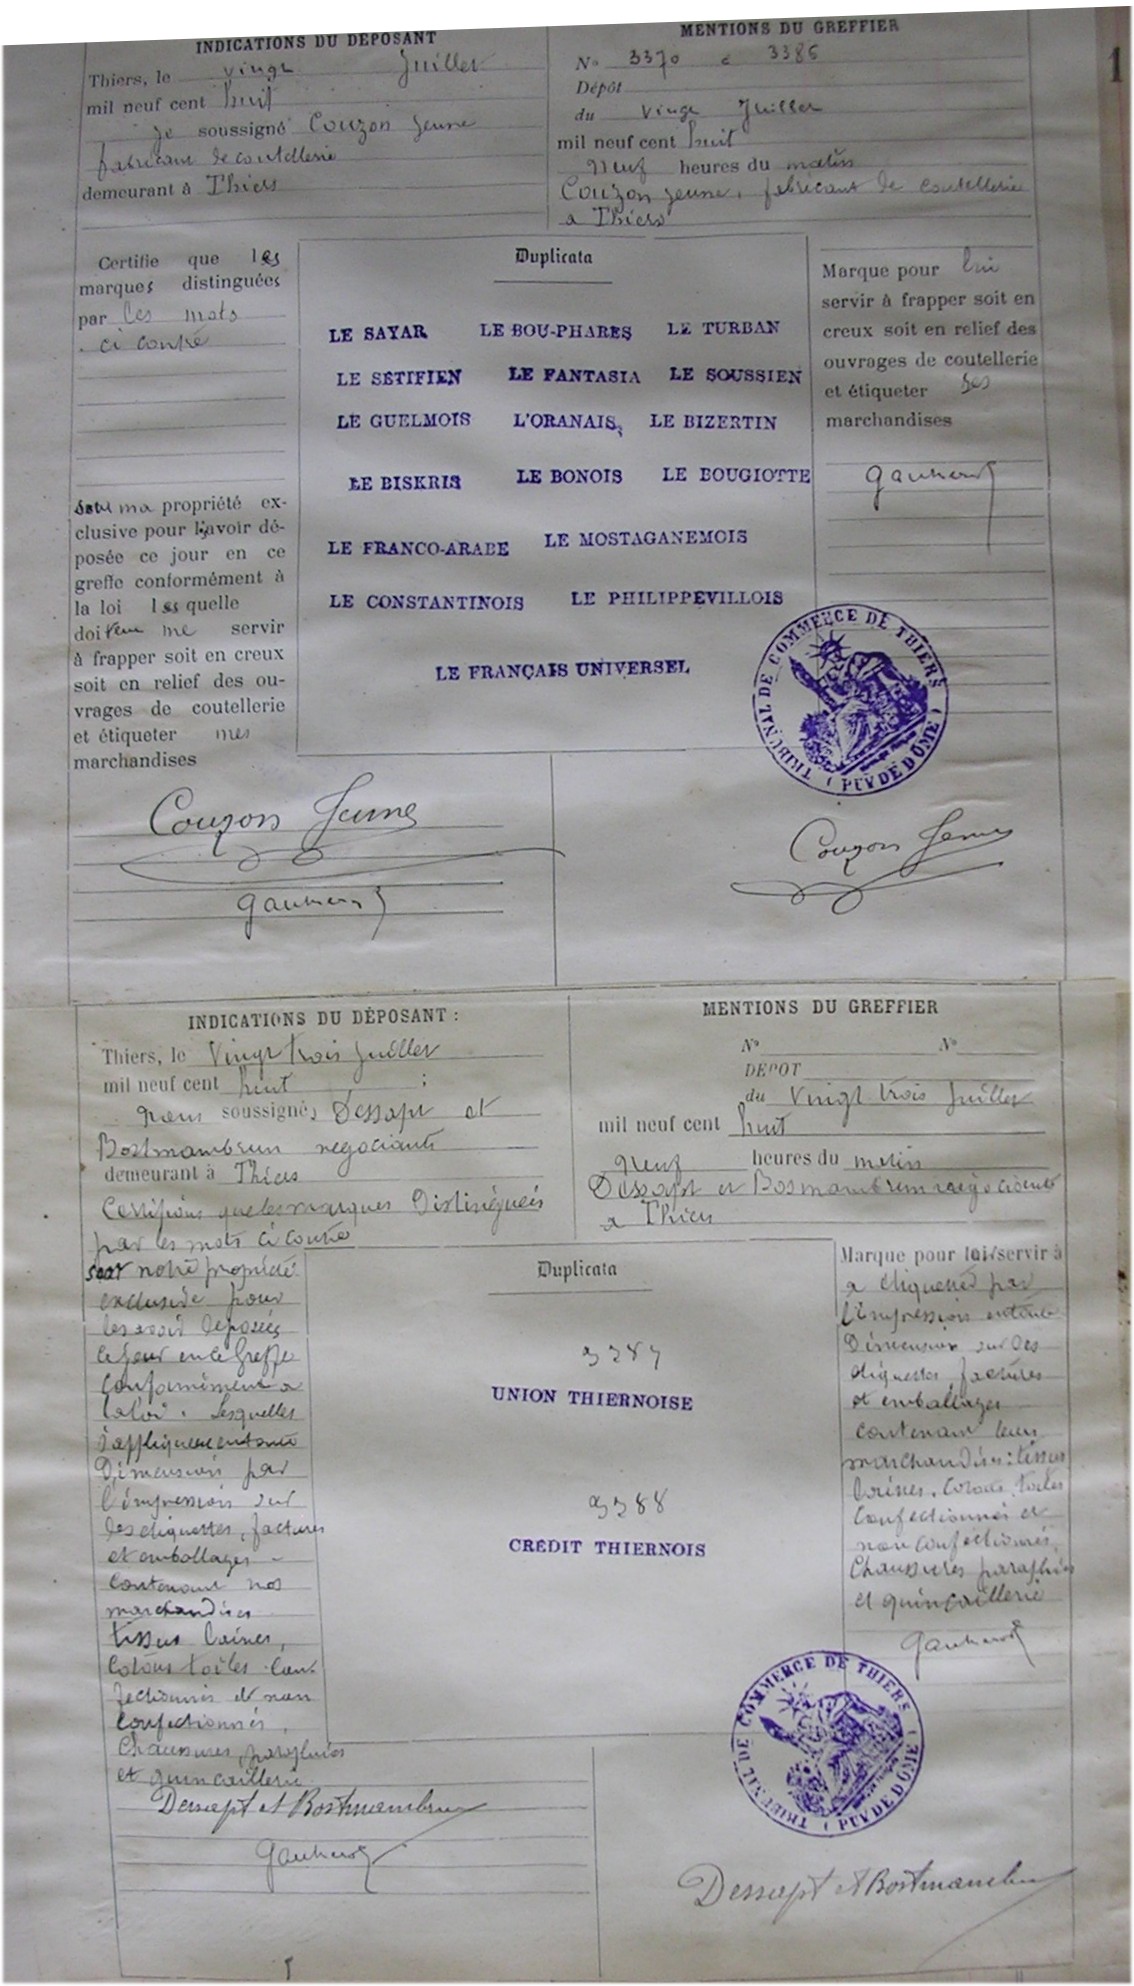 INDICATIONS DU DÉPOSANT
Thiers, le vingt Juillet
mil neuf cent huit
je soussigné Couzon Jeune
fabricant de coutellerie
demeurant à Thiers
MENTIONS DU GREFFIER
No 3370 à 3386
Dépôt
du vingt Juillet
mil neuf cent huit
neuf heures du matin
Couzon jeune, fabricant de coutellerie
a Thiers
1
Certifie que les
marques distinguées
par les mots
ci contre
sont ma propriété ex-
clusive pour l'avoir dé-
posée ce jour en ce
greffe conformément à
la loi lesquelle
doivent me servir
à frapper soit en creux
soit en relief des ou-
vrages de coutellerie
et étiqueter mes
marchandises
Duplicata
LE SAYAR LE BOU-PHARES LE TURBAN
LE SÉTIFIEN LE FANTASIA LE SOUSSIEN
LE GUELMOIS L'ORANAIS, LE BIZERTIN
LE BISKRIS LE BONOIS LE BOUGIOTTE
LE FRANCO-ARABE LE MOSTAGANEMOIS
LE CONSTANTINOIS LE PHILIPPEVILLOIS
LE FRANÇAIS UNIVERSEL
Marque pour lui
servir à frapper soit en
creux soit en relief des
ouvrages de coutellerie
et étiqueter ses
marchandises
TRIBUNAL DE COMMERCE DE THIERS
(PUY DE DÔME)
Couzon Jeune
Couzon Jeune
INDICATIONS DU DÉPOSANT :
Thiers, le vingt trois Juillet
mil neuf cent huit ;
nous soussignés Dessapt et
Bostmambrun negociants
demeurant à Thiers
Certifions que les marques distinguées
par les mots ci contre
MENTIONS DU GREFFIER
No No
DÉPOT
du vingt trois Juillet
mil neuf cent huit
neuf heures du matin
Dessapt et Bosmambrun negociants
a Thiers
sont notre propriété
exclusive pour
les avoir deposées
ce jour en ce Greffe
conformément a
la loi. Lesquelles
s'appliquent en toute
Dimension par
l'impression sur
des etiquettes, factures
et emballages
contenant nos
marchandises
tissus laines,
cotons toiles con-
fectionnés et non
confectionnés,
Chaussures, parapluies
et quincaillerie
Duplicata
3387
UNION THIERNOISE
3388
CRÉDIT THIERNOIS
Marque pour servir à
a etiquetter par
l'impression en toute
Dimension sur des
etiquettes, factures
et emballages
contenant leurs
marchandises: tissus
laines, cotons, toiles
confectionnés et
non confectionnés,
Chaussures parapluies
et quincaillerie
TRIBUNAL DE COMMERCE DE THIERS
(PUY DE DÔME)
Dessapt et Bostmambrun
Dessapt et Bostmambrun